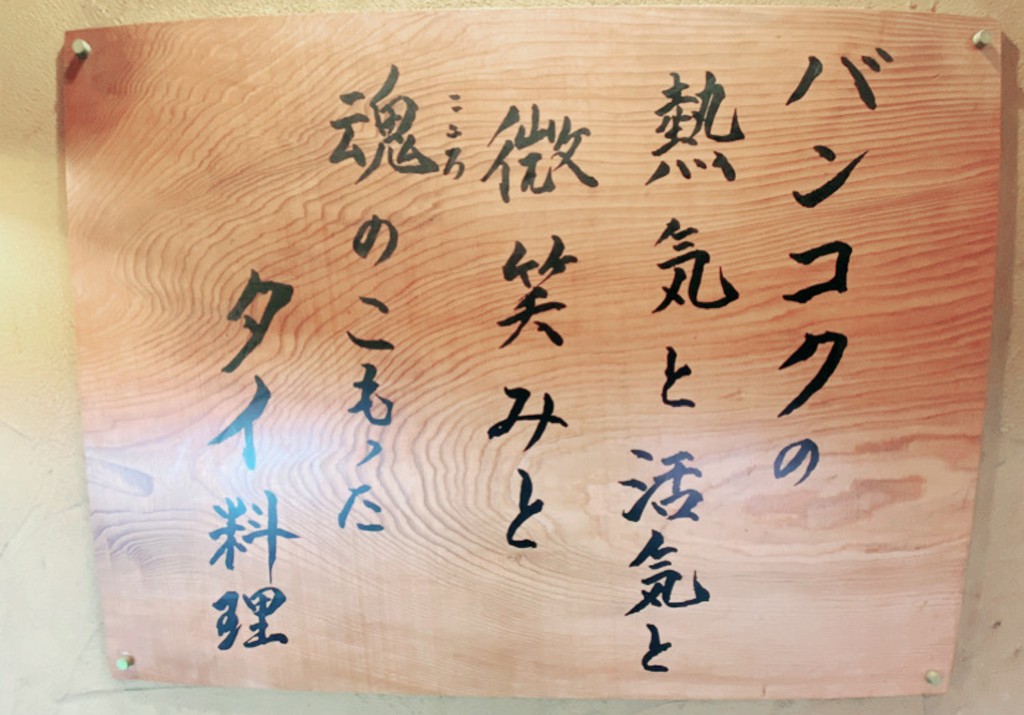 バンコクの
熱気と活気と
微笑みと
魂のこもった
こころ
タイ料理